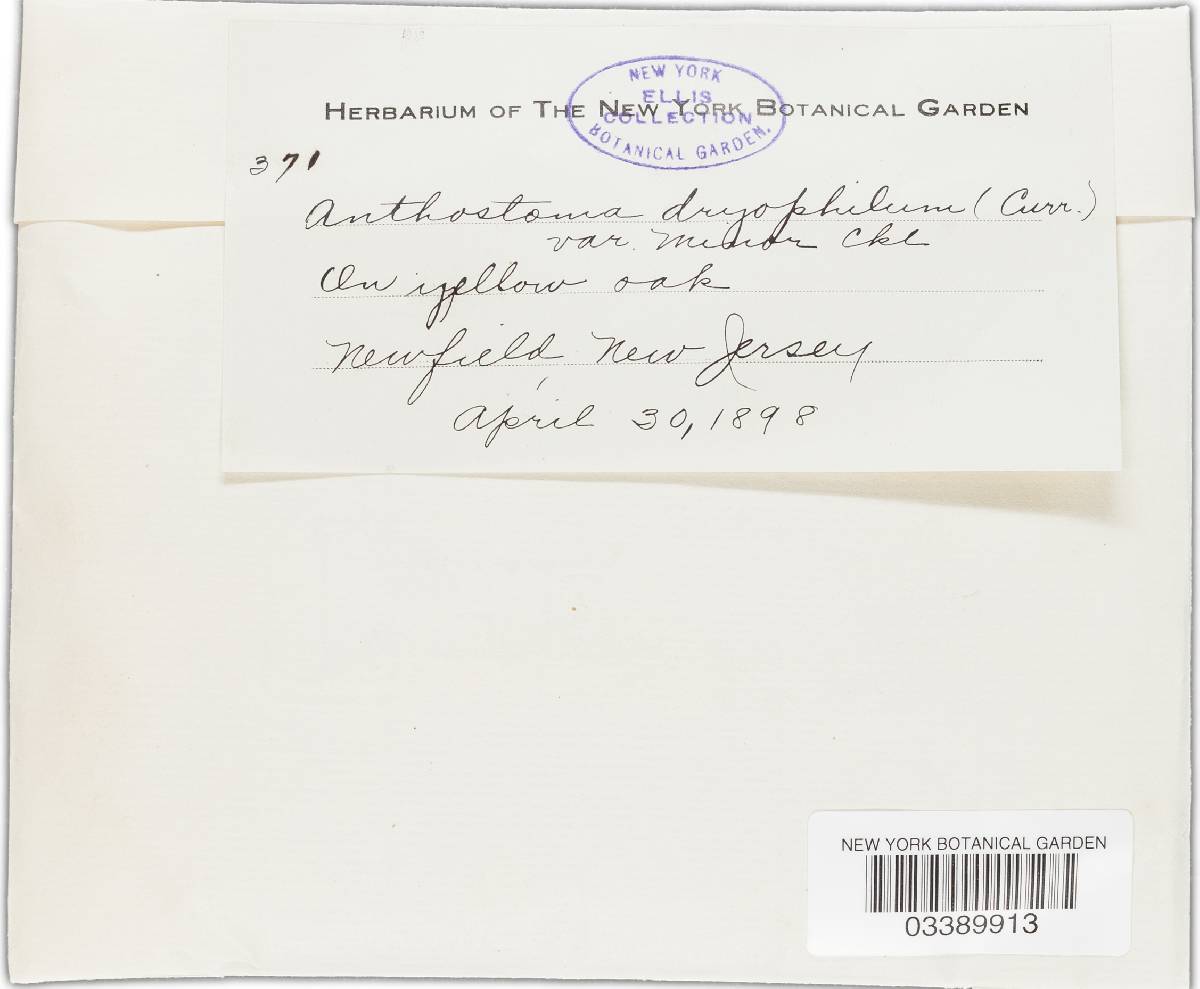 HERBARIUM OF THE NEW YORK BOTANICAL GARDEN
NEW YORK
ELLIS
COLLECTION
BOTANICAL GARDEN.
371
Anthostoma dryophilum (Curr.)
var. minor Ckl
On yellow oak
Newfield, New Jersey
April 30, 1898
NEW YORK BOTANICAL GARDEN
03389913